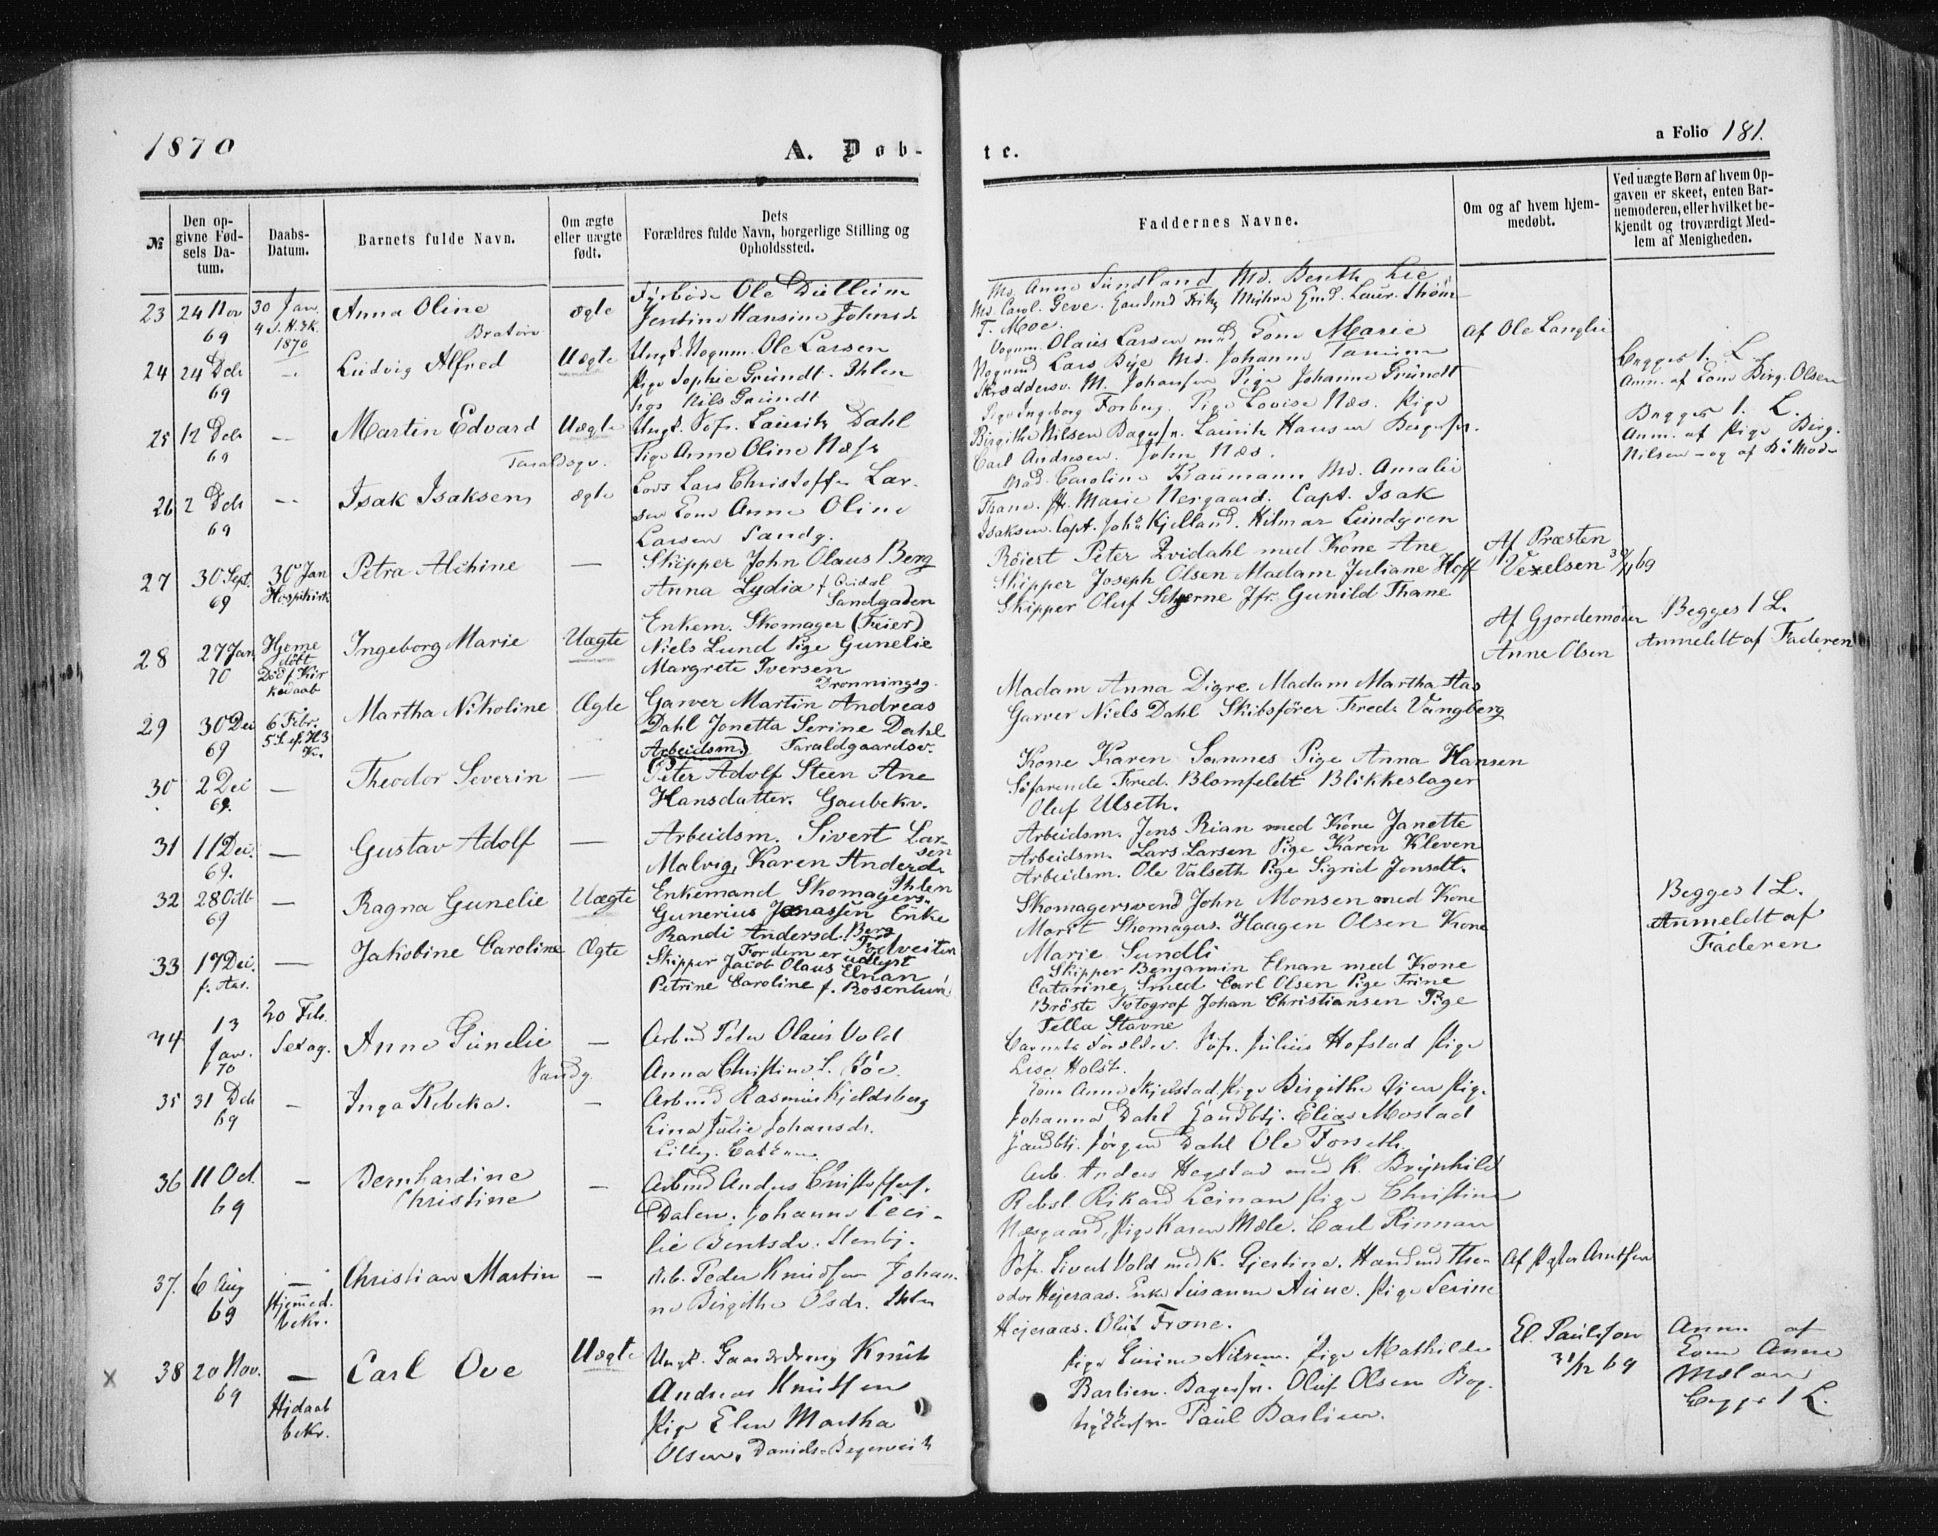 1870
A. Døb-
te.
a Folio 181.
№
Den op-
givne Fød-
sels Da-
tum.
Daabs-
Datum.
Barnets fulde Navn.
Om ægte
eller uægte
født.
Dets
Forældres fulde Navn, borgerlige Stilling og
Opholdssted.
Faddernes Navne.
Om og af hvem hjem-
medøbt.
Ved uægte Børn af hvem Op-
gaven er skeet, enten Bar-
nemoderen, eller hvilket be-
kjendt og troværdigt Med-
lem af Menigheden.
23 24 Nov 69
30 Jan. 1870
Anna Oline
ægte
Fyrbøder Ole
Jensine Hansine Johnsdr
Md. Anna Sundland Md. Bereth Lie
Md. Carol.
T. Moe.
af Ole Langlie
24 24 Deb 69
Ludvig Alfred
Uægte
Ungk. Vognm. Ole Larsen
Pige Sophie Gründt. Ihlen
hos Nils Gründt
Vognm. Olaus Larsen med Kone Marie
Vognmd Lars Bye Md. Johanna
Skræddersv. M. Johansen Pige Johanne Gründt
Begges 1. L.
Anm. af Kone Birg. Olsen
25 12 Deb 69
Martin Edvard
Uægte
Ungk. Søfr. Lauritz Dahl
Pige Anne Oline Næss
Pige Ingeborg Forberg. Pige Lovise Næs. Pige
Birgithe Nilsen Bagersv. Lauritz Hansen Bagersv.
Carl Andresen. John Næs.
Begges 1. L.
Anm. af Pige Birg.
Nilsen - og af B: Mod-
26 2 Deb 69
Isak Isaksen
ægte
Lods Lars Christoffer Lar-
sen Kone Anne Oline
Larsen Sandg.
Mad. Caroline Md. Amalie
Thane. Marie Nergaard. Capt. Isak
Isaksen. Capt. Johs Kjelland. Hilmar Lundgren
27 30 Sept. 69
30 Jan
Hospkirk
Petra Alchine
—
Skipper John Olaus Berg
Anna Lydia f Qvidal
Sandgaden
Røiert Peter Qvidahl med Kone Ane
Skipper Joseph Olsen Madam Juliane Hoff
Skipper Oluf Stjerne Jfr. Gunild Thane
Af Præsten
Vexelsen 30/9 69
28 27 Jan 70
Hjeme
døbt
Død f. Kir
kedaab
Ingeborg Marie
Uægte
Enkem. Skomager (Feier)
Niels Lund Pige Gunelie
Margrete Iversen
Dronningsg.
Af Gjordemoder
Anne Olsen
Begges 1 L.
Anmeldt af Faderen
29 30 Dec 69
6 Febr.
5 S. ef. H3
K.
Martha Nikoline
Ægte
Garver Martin Andreas
Dahl Jonetta Serine Dahl
Taraldgaardsv.
Madam Anna Digre. Madam Martha Aas
Garver Niels Dahl Skibsfører Fred. Vangberg
30 2 Dec 69.
—
Theodor Severin
—
Arbeidsm)
Peter Adolf Steen Ane
Hansdatter. Gaubekv.
Kone Karen Sannes Pige Anna Hansen
Søfarende Fred. Blomfeldt Blikkeslager
Oluf Ulseth.
31 11 Dec. 69.
—
Gustav Adolf
—
Arbeidsm. Sivert Lar-
sen
Malvig, Karen Andersd.
Ihlen
Arbeidsm. Jens Rian med Kone Janette
Arbeidsm. Lars Larsen Pige Karen Kleven
Arbeidsm. Ole Valseth Pige Sigrid Jensdt.
32 28 Odt 69
—
Ragna Gunelie
Uægte
Enkemand Skomagers.
Gunerius Jonassen Enke
Randi Andersd. Berg
For dem er udlyst
Skomagersvend John Monsen med Kone
Marit Skomagers. Haagen Olsen Kone
Marie Sundli
Begges 1 L.
Anmeldt af
Faderen
33 17 Dec. f. Aar.
—
Jakobine Caroline
Ægte
Skipper Jacob Olaus Elnan
Petrine Caroline f. Rosenlund
Skipper Benjamin Elnan med Kone
Catarine, Smed Carl Olsen Pige Trine
Brøste Fotograf Johan Christiansen Pige
Tella Stavne
34 13 Jan. 70
20 Feb.
Sexag.
Anne Gunelie
Sandg.
—
Arbmd Peter Olaus Vold
Anna Christine L. Røe.
Barnets Forældre. Søfr. Julius Hofstad Pige
Lise Holst.
35 31 Deb 69
—
Inga Rebeka.
—
Arbmd Rasmus Kjeldsberg
Lina Julie Johansdr.
Kone Anne Skjelstad, Pige Birgithe Pige
Johanna Dahl Gaardbtj. Elias Mostad
Gaardbtj. Jørgen Dahl Ole Forseth.
36 11 Oct. 69
—
Bernhardine
Christine
—
Arbmd Anders Christoffers.
Dalen. Johanne Ceci-
lie Bentsdr. Stenbj.
Arb. Anders Hegstad med K. Brynhild
Rebsl Rikard Leinan Pige Christine
Næsgaard, Pige Karen Mæle. Carl Rinnan
37. 6 Aug 69
—
Hjemed.
bekr.
Christian Martin
—
Arb. Peder Knudsen Johan-
ne Birgithe Olsdr. Ihlen
Søfr. Sivert Vold med K. Gjertine. Handmd The-
odor Hejeraas. Enke Susanne Aune. Pige Serine
Hejeraas. Oluf Trone.
Af Arntsen
x 38 20 Nov. 69
—
Hjdaab
bekr.
Carl Ove
Uægte
Ungk. Gaardsdreng Knut
Andreas Knutsen
Pige Elen Martha
Olsen,
Pige Nilsen. Pige Mathilde
Barlien. Bagersv. Oluf Olsen Bog-
trykkersv. Paul Barlien.
El. Paulsson
31/12 69
Anm. af
Kone Anne
Begge 1 L.